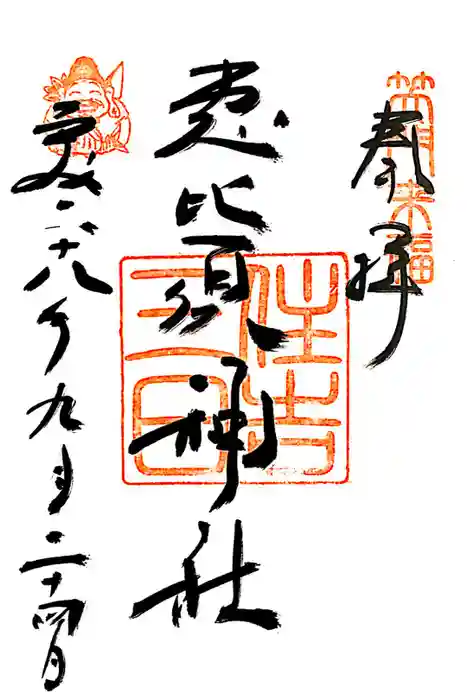 奉拝
笑門来福
恵比須神社
住吉
三日
平成二十八年九月二十四日